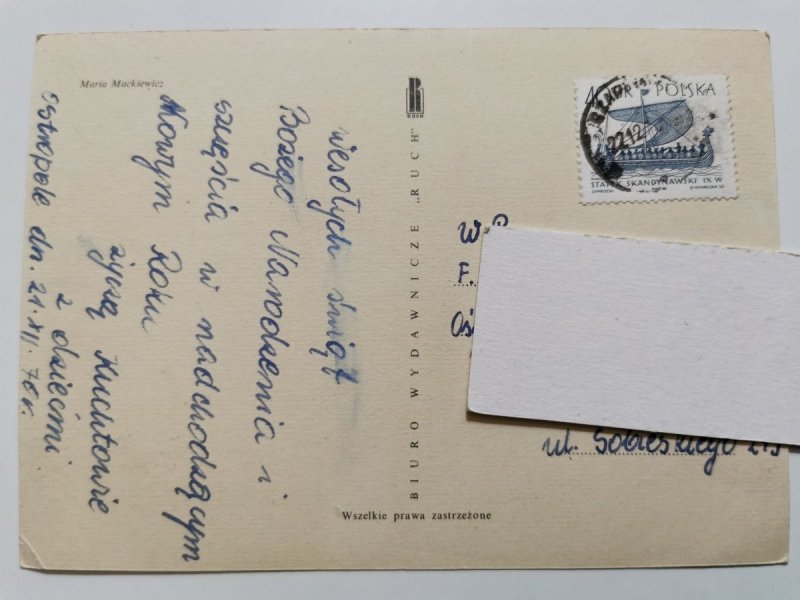 Maria Mackiewicz
RUCH
BIURO WYDAWNICZE „RUCH"
Wszelkie prawa zastrzeżone
Wesołych świąt
Bożego Narodzenia i
szczęścia w nadchodzącym
Nowym Roku
życzą Kuchtowie
z dziećmi
dn. 21.XII.70 r.
GR POLSKA
22.12
STATEK SKANDYNAWSKI IX W
W.P.
F.
Oś
ul. Sobieskiego